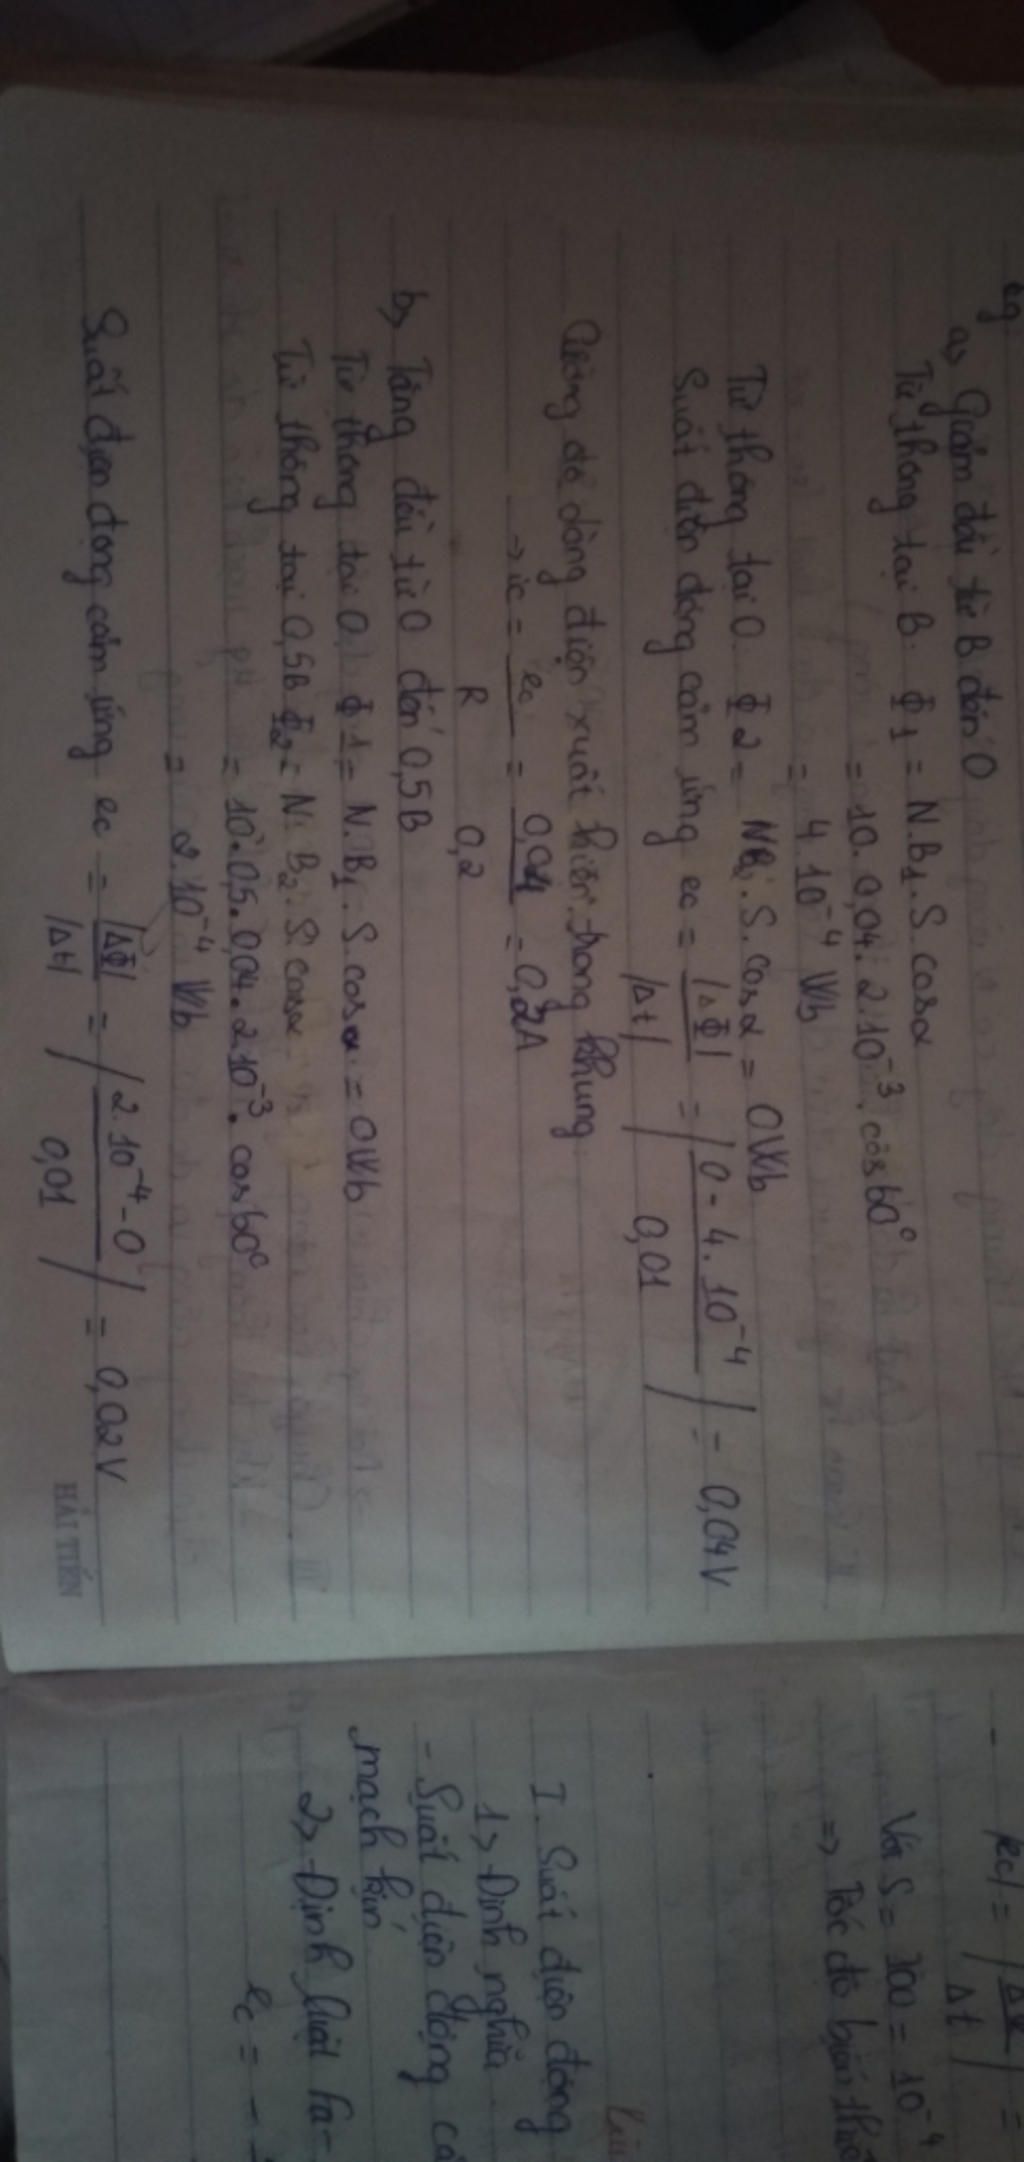 a, Giảm đều từ B đến O
Từ thông tại B. Φ1 = N.B1.S cosα
= 10.0,04.2.10⁻³.cos60°
= 4.10⁻⁴ Wb
Từ thông tại O Φ2 = NB2.S.cosα = 0Wb
Suất điện động cảm ứng ec = |ΔΦ| / |Δt| = | 0 - 4.10⁻⁴ / 0,01 | = 0,04V
Cường độ dòng điện xuất hiện trong khung
→ ic = ec / R = 0,04 / 0,2 = 0,2A
b, Tăng đều từ 0 đến 0,5B
Từ thông tại 0, Φ1 = N.B1.S.cosα = 0Wb
Từ thông tại 0,5B Φ2 = N.B2.S.cosα
= 10.0,5.0,04.2.10⁻³.cos60°
= 2.10⁻⁴ Wb
Suất điện động cảm ứng ec = |ΔΦ| / |Δt| = | 2.10⁻⁴ - 0 / 0,01 | = 0,02V
HẢI TIẾN
Với S = 100 = 10⁻⁴
=> Tốc độ biến
I. Suất điện động
1, Định nghĩa
- Suất điện động
mạch kín
2, Định luật Fa-
ec = -